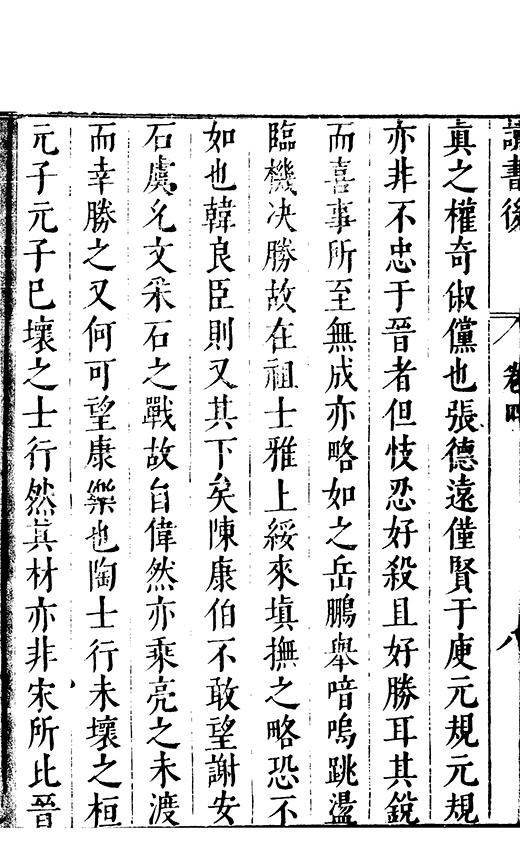 讀書後 卷四 八
真之權奇俶儻也張德遠僅賢于庾元規元規
亦非不忠于晉者但忮忍好殺且好勝耳其銳
而喜事所至無成亦略如之岳鵬舉喑嗚跳盪
臨機决勝故在祖士雅上綏來填撫之略恐不
如也韓良臣則又其下矣陳康伯不敢望謝安
石虞允文采石之戰故自偉然亦乘亮之未渡
而幸勝之又何可望康樂也陶士行未壞之桓
元子元子已壞之士行然其材亦非宋所比晉